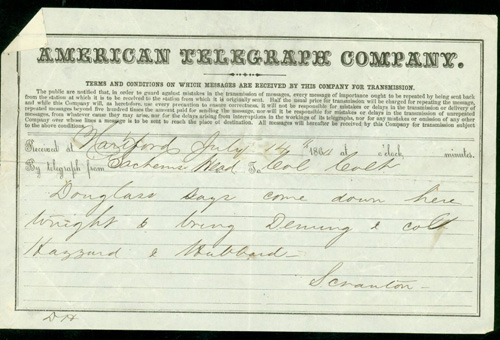 AMERICAN TELEGRAPH COMPANY.
TERMS AND CONDITIONS ON WHICH MESSAGES ARE RECEIVED BY THIS COMPANY FOR TRANSMISSION.
The public are notified that, in order to guard against mistakes in the transmission of messages, every message of importance ought to be repeated by being sent back
from the station at which it is to be received to the station from which it is originally sent. Half the usual price for transmission will be charged for repeating the message,
and while this Company will, as heretofore, use every precaution to ensure correctness, it will not be responsible for mistakes or delays in the transmission or delivery of
repeated messages beyond five hundred times the amount paid for sending the message, nor will it be responsible for mistakes or delays in the transmission of unrepeated
messages, from whatever cause they may arise, nor for delays arising from interruptions in the workings of its telegraphs, nor for any mistake or omission of any other
Company over whose lines a message is to be sent to reach the place of destination. All messages will hereafter be received by this Company for transmission subject
to the above conditions.
Received at Hartford July 14 186 at o'clock, minutes.
By telegraph from Sachems Head To Col Colt
Douglass says come down here
tonight & bring Deming & colt
Hazzard & Hubbard-
Scranton-
D H